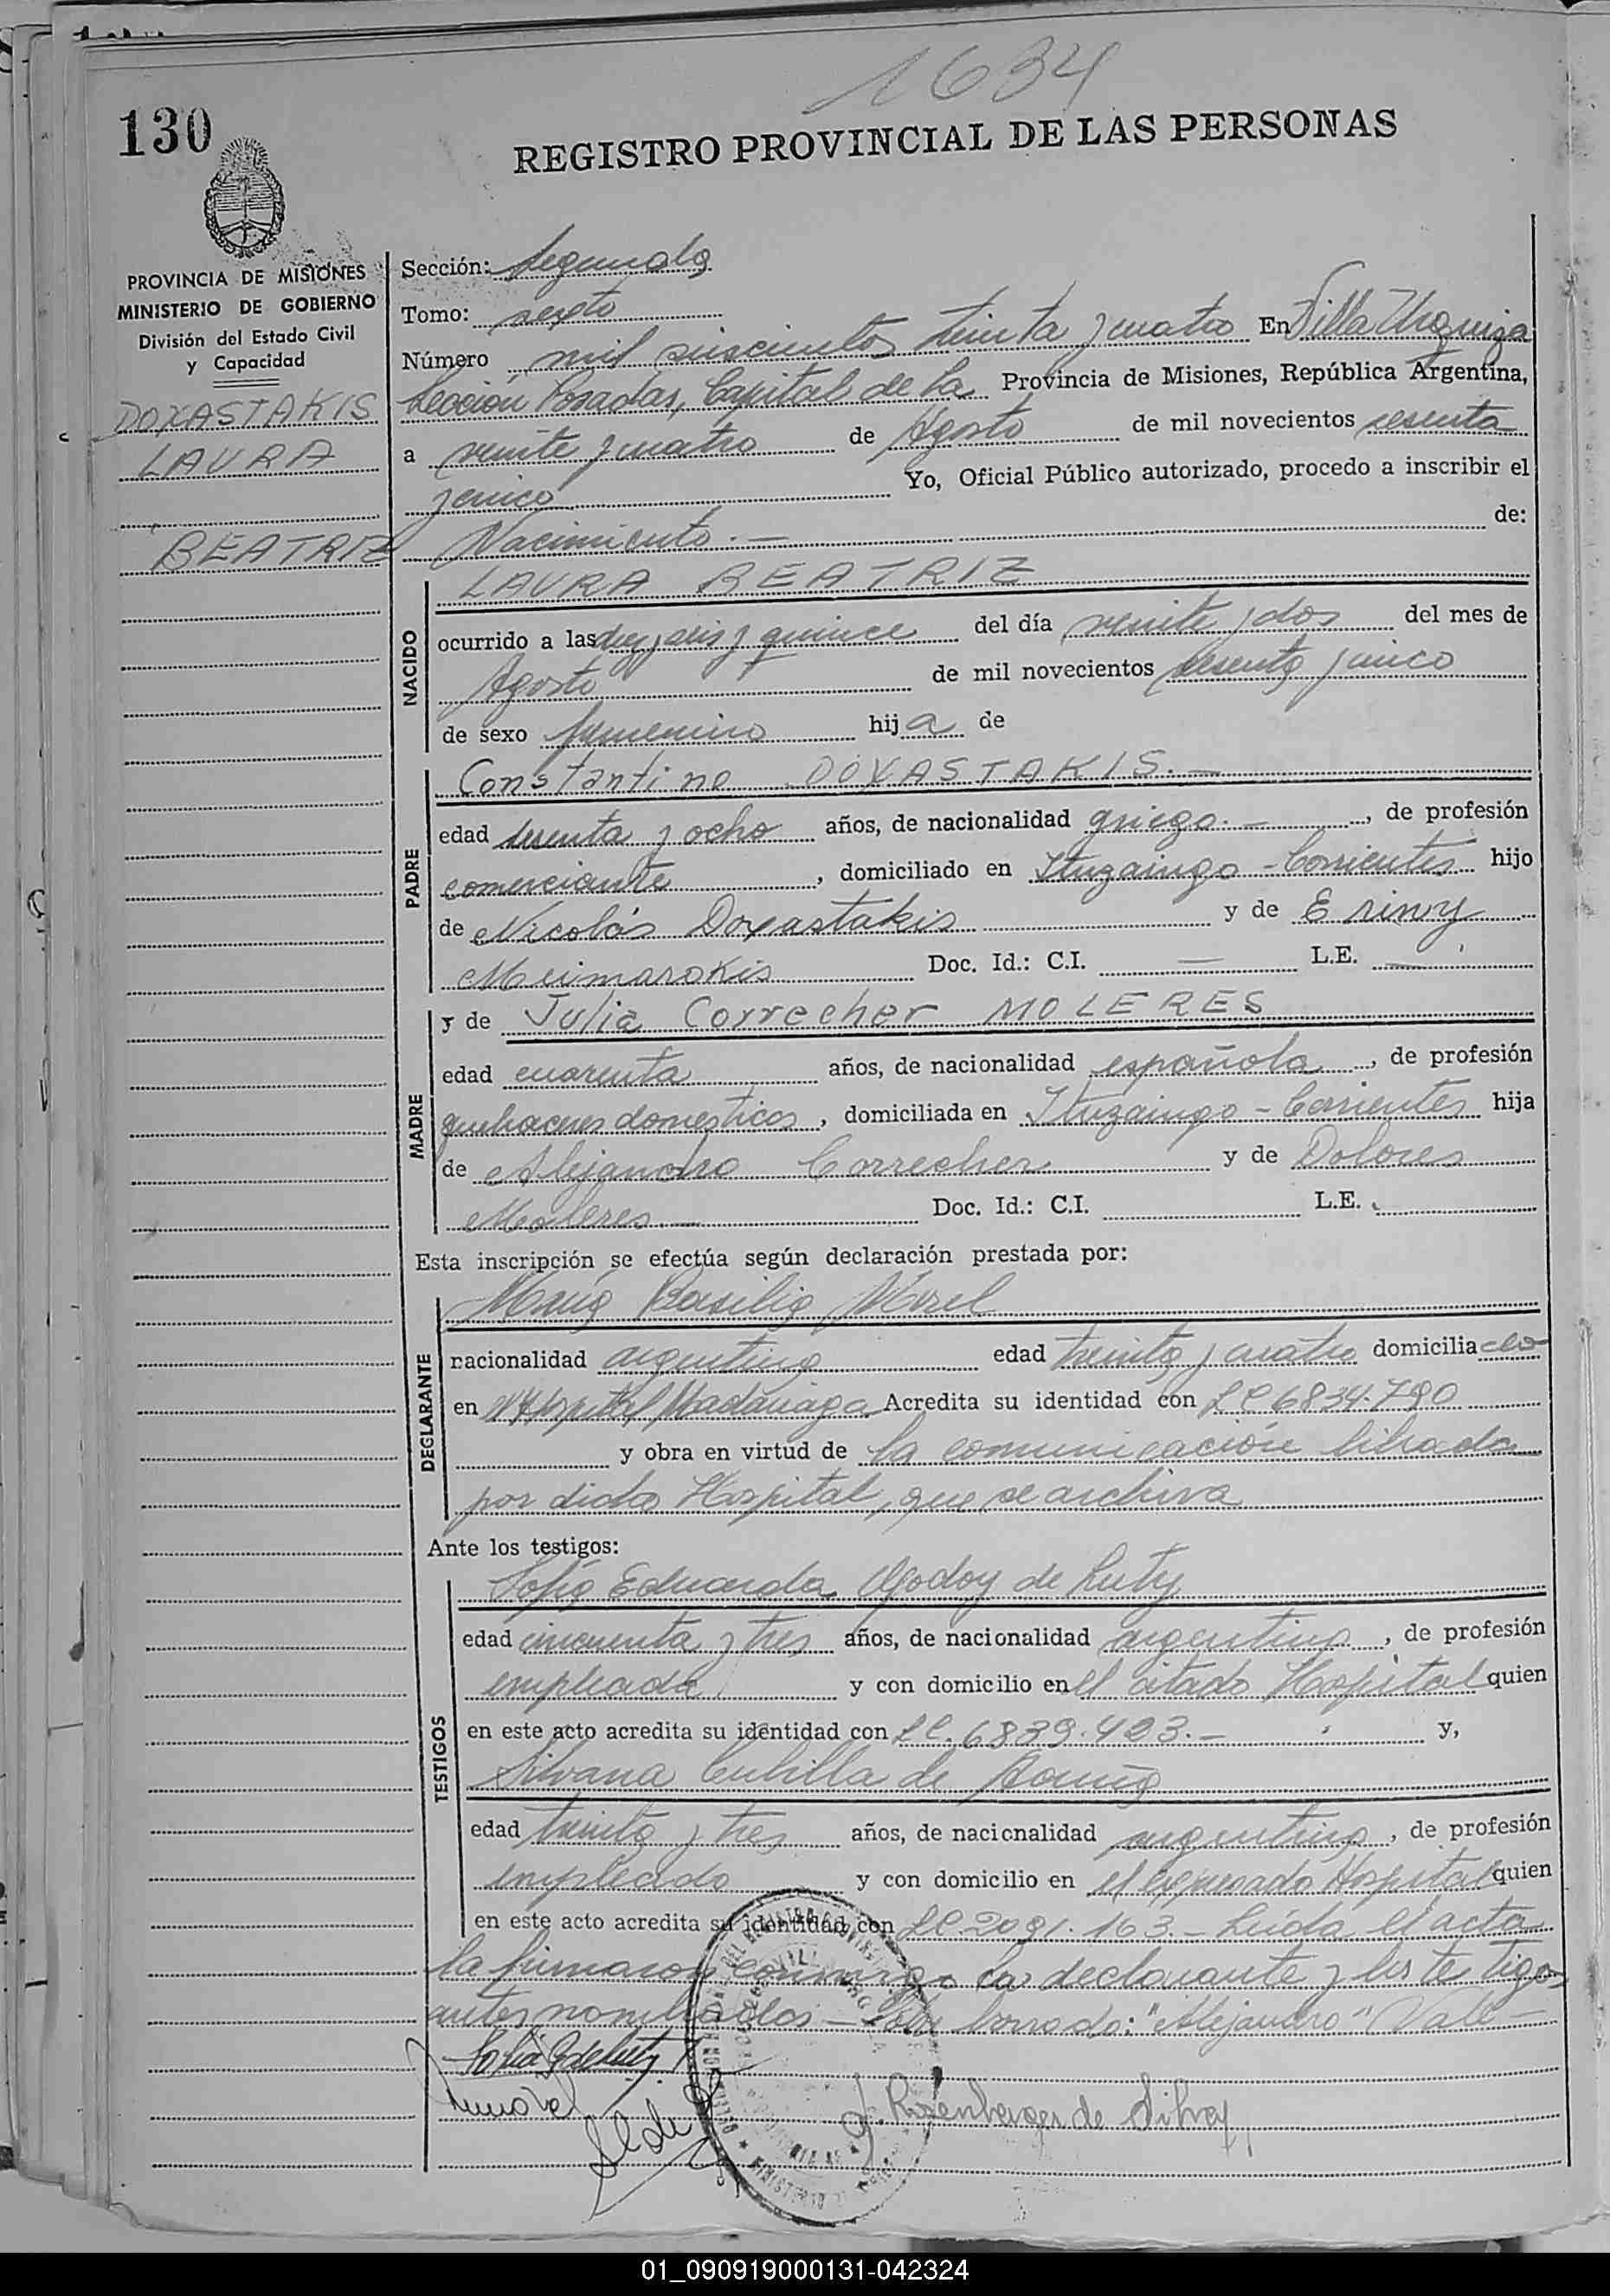 1634
130
REGISTRO PROVINCIAL DE LAS PERSONAS
PROVINCIA DE MISIONES
MINISTERIO DE GOBIERNO
División del Estado Civil
y Capacidad
DOXASTAKIS
LAURA
BEATRIZ
Sección: segunda
Tomo: sexto
Número mil seiscientos treinta y cuatro En Villa Urquiza
Sección Posadas, Capital de la Provincia de Misiones, República Argentina,
a veinte y cuatro de Agosto de mil novecientos sesenta
y cinco Yo, Oficial Público autorizado, procedo a inscribir el
Nacimiento.— de:
NACIDO
LAURA BEATRIZ
ocurrido a las diez y seis y quince del día veinte y dos del mes de
Agosto de mil novecientos sesenta y cinco
de sexo femenino hija de
PADRE
Constantino DOXASTAKIS.—
edad y ocho años, de nacionalidad griego.—, de profesión
comerciante, domiciliado en Ituzaingo - Corrientes hijo
de Nicolás Doxastakis y de Eriny
Meimarakis Doc. Id.: C.I. — L.E. —
MADRE
y de Julia Correcher MOLERES
edad cuarenta años, de nacionalidad española, de profesión
quehaceres domesticos, domiciliada en Ituzaingo - Corrientes hija
de Alejandro Correcher y de Dolores
Moleres.— Doc. Id.: C.I. L.E.
Esta inscripción se efectúa según declaración prestada por:
DECLARANTE
María Basilia Morel
nacionalidad argentina edad treinta y cuatro domiciliado
en Hospital Madariaga Acredita su identidad con LC 6834.790
y obra en virtud de la comunicación librada
por dicho Hospital, que se archiva
Ante los testigos:
TESTIGOS
Sofía Eduarda Godoy de Luty
edad cincuenta y tres años, de nacionalidad argentina, de profesión
empleada y con domicilio en el citado Hospital quien
en este acto acredita su identidad con LC. 6839.493.— y,
Silvana Cubilla de
edad treinta y tres años, de nacionalidad argentina, de profesión
empleado y con domicilio en el expresado Hospital quien
en este acto acredita su identidad con LC.2091.163.— Leída el acta
la firmaron conmigo la declarante y los testigos
antes nombrados — borrado: "Alejandro" Vale —
Sofía G de Luty
J. Rosenberger de Silvey
01_090919000131-042324